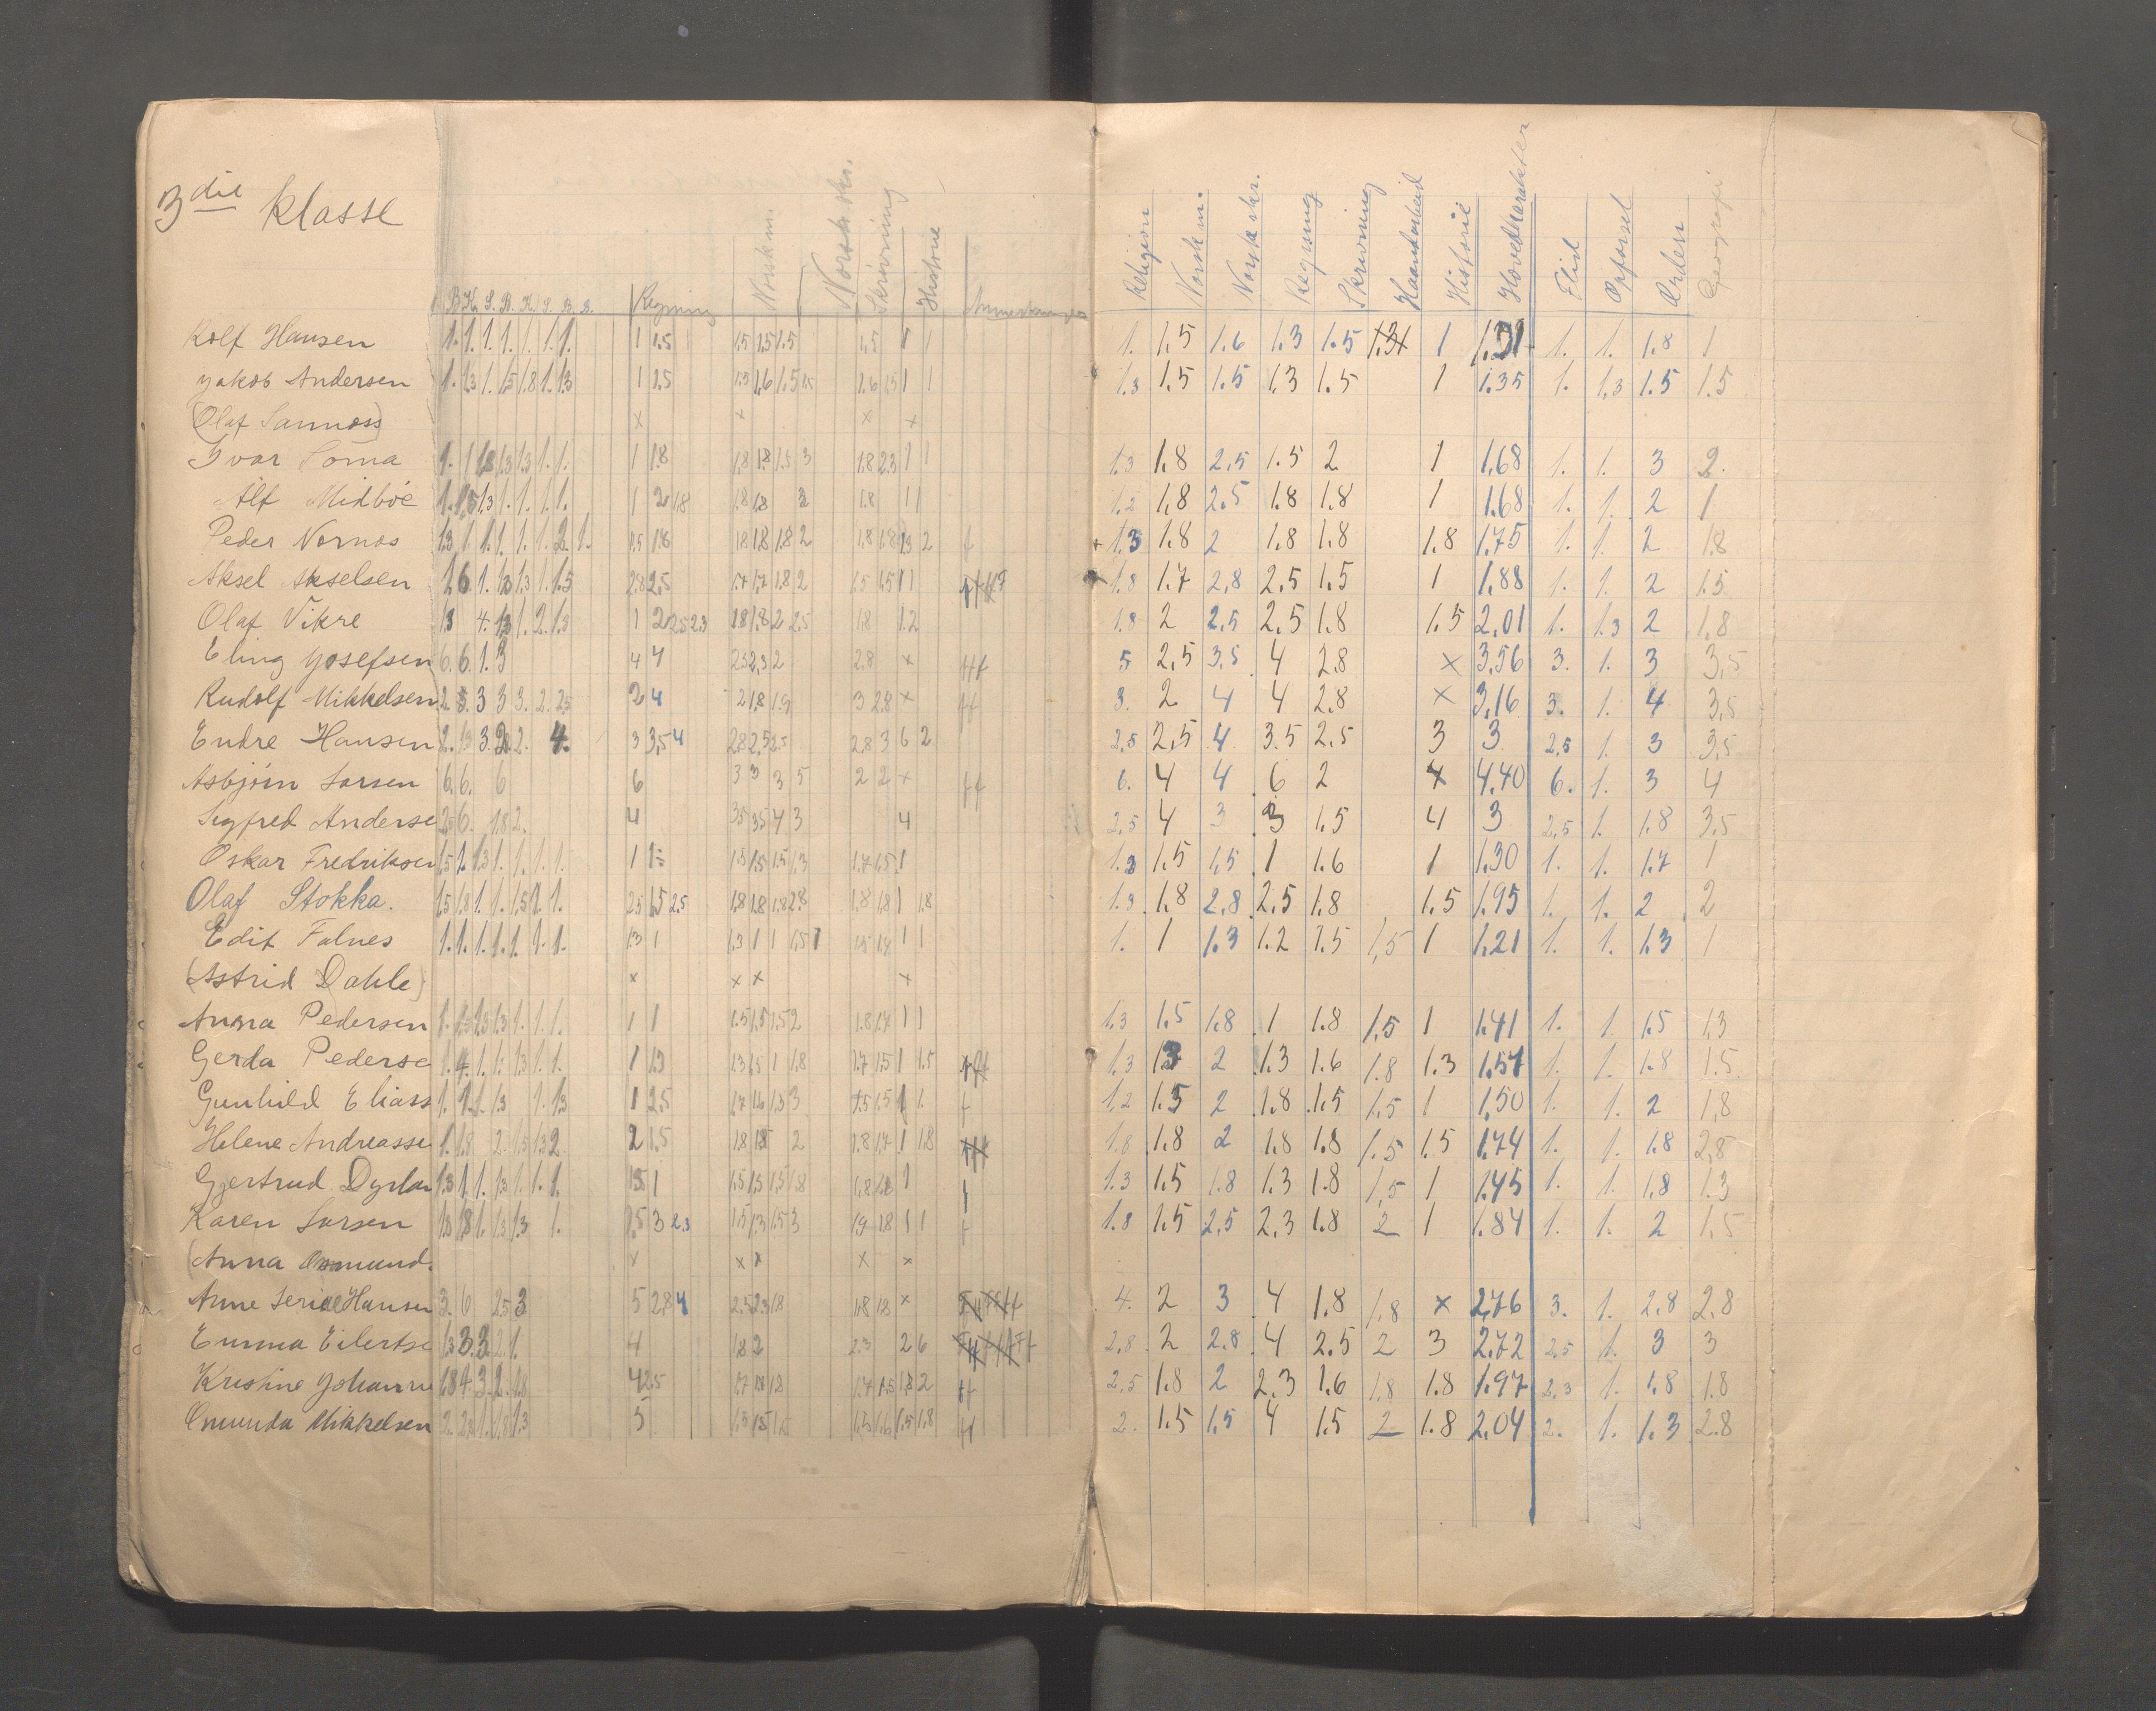 3die klasse
B. K. S. B. K. S. B. S. Regning Norsk m. Norsk skr. Skrivning Historie Anmerkninger
Religion Norsk m. Norsk skr. Regning Skrivning Haandarbeid Historie Hovedkarakter Flid Opførsel Orden Geografi
Rolf Hansen 1. 1. 1. 1. 1. 1. 1. 1 1.5 1.5 1.5 1.5 1.5 1 1 1. 1.5 1.6 1.3 1.5 1 1.31 1. 1. 1.8 1
Yakob Andersen 1. 1.3 1. 1.5 1.8 1. 1.3 1 2.5 1.5 1.6 1.5 1.5 1.6 1.5 1 1 1.3 1.5 1.5 1.3 1.5 1 1.35 1. 1.3 1.5 1.5
(Olaf Sannæss) x x x x
Ivar Soma 1 1.8 1.8 1.8 1.5 3 1.8 2.3 1 1 1.3 1.8 2.5 1.5 2 1 1.68 1. 1. 3 2.
Alf Midbøe 1 2 1.8 1.8 1.8 2 1.8 1 1 1.2 1.8 2.5 1.8 1.8 1 1.68 1. 1. 2 1
Peder Nornes 1.5 1.8 1.8 1.8 1.8 2 1.8 1.8 1.3 2 f 1.3 1.8 2 1.8 1.8 1.8 1.75 1. 1. 2 1.8
Aksel Akselsen 2.8 2.5 1.7 1.7 1.8 2 1.5 1.5 1 1 1.8 1.7 2.8 2.5 1.5 1 1.88 1. 1. 2 1.5
Olaf Vikre 1 2 2.5 2.3 1.8 1.8 2 2.5 1.8 1.2 1.8 2 2.5 2.5 1.8 1.5 2.01 1. 1.3 2 1.8
Eling Yosefsen 6. 6. 1. 3 4 4 2.5 2.3 2 2.8 x ff 5 2.5 3.5 4 2.8 x 3.56 3. 1. 3 3.5
Rudolf Mikkelsen 2. 5. 3 3 3. 2. 2.5 2 4 2 1.8 1.9 3 2.8 x ff 3. 2 4 4 2.8 x 3.16 3. 1. 4 3.5
Endre Hansen 3 3.5 4 2.8 2.5 2.5 2.8 3 6 2 2.5 2.5 4 3.5 2.5 3 3 2.5 1. 3 3.5
Asbjörn Larsen 6. 6. 6 6 3 3 3 5 2 2 x ff 6. 4 4 6 2 x 4.40 6. 1. 3 4
Sigfred Anderse 2.5 6. 1.8 2. 4 3.5 3.5 4 3 4 2.5 4 3 3 1.5 4 3 2.5 1. 1.8 3.5
Oskar Fredriksen 1.5 1.5 1.5 1.3 1.7 1.5 1 1.3 1.5 1.5 1 1.6 1 1.30 1. 1. 1.7 1
Olaf Stokka. 1.5 1.8 1. 1. 1.5 1. 1. 2.5 1.5 2.5 1.8 1.8 1.8 2.8 1.8 1.8 1 1.8 1.3 1.8 2.8 2.5 1.8 1.5 1.95 1. 1. 2 2
Edit Falnes 1. 1. 1. 1. 1. 1. 1. 1.3 1 1.3 1 1 1.5 1 1.5 1.4 1 1 1. 1 1.3 1.2 1.5 1.5 1 1.21 1. 1. 1.3 1
(Astrid Dahle) x x x x
Anna Pedersen 1 1 1.5 1.5 1.5 2 1.8 1.7 1 1 1.3 1.5 1.8 1 1.8 1.5 1 1.41 1. 1. 1.5 1.3
Gerda Pederse 1. 4. 1. 1. 1.3 1. 1. 1 1.3 1.3 1.5 1 1.8 1.7 1.5 1 1.5 1.3 1.3 2 1.3 1.6 1.8 1.3 1.57 1. 1. 1.8 1.5
Gunhild Eliass 1 2.5 1.7 1.6 1.3 3 1.5 1.5 1 1. f 1.2 1.5 2 1.8 1.5 1.5 1 1.50 1. 1. 2 1.8
Helene Andreasse 2 1.5 1.8 1.8 2 1.8 1.7 1 1.8 1.8 1.8 2 1.8 1.8 1.5 1.5 1.74 1. 1. 1.8 2.8
Gjertrud Dyrlan 1.5 1 1.5 1.5 1.5 1.8 1.8 1.8 1 1.3 1.5 1.8 1.3 1.8 1.5 1 1.45 1. 1. 1.8 1.3
Karen Larsen 1.3 1.8 1. 1.3 1.3 1. 2.5 3 2.3 1.5 1.3 1.5 3 1.9 1.8 1 1 f 1.8 1.5 2.5 2.3 1.8 2 1 1.84 1. 1. 2 1.5
(Anna Osmund. x x x x x
Anne Serine Hansen 3. 6 2.5 3 5 2.8 4 2.5 2.3 1.8 1.8 1.8 x 4. 2 3 4 1.8 1.8 x 2.76 3. 1. 2.8 2.8
Emma Eilertse 1.3 3. 3. 2. 1. 4 1.8 2 2.3 2 6 2.8 2 2.8 4 2.5 2 3 2.72 2.5 1. 3 3
Kristine Johanne 1.8 4. 3. 2. 1.8 4 2.5 1.7 1.8 1.8 1.7 1.5 1.8 2 ff 2.5 1.8 2 2.3 1.6 1.8 1.8 1.97 2.3 1. 1.8 1.8
Omunda Mikkelsen 2. 2.3 1. 1.8 1.3 5 1.5 1.5 1.5 1.5 1.6 1.5 1.8 ff 2. 1.5 1.5 4 1.5 2 1.8 2.04 2. 1. 1.3 2.8